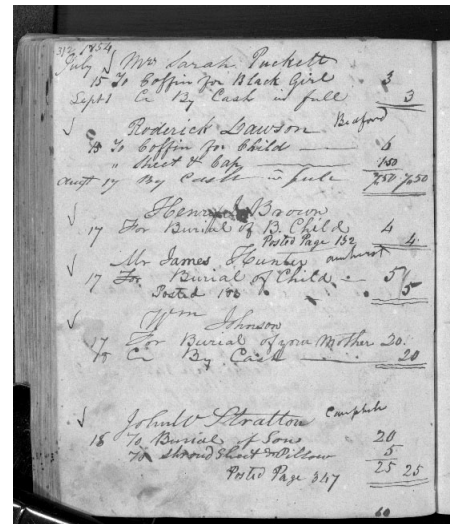 312 1854
July Mrs Sarah Puckett
15 To Coffin for Black Girl 3
Sept 1 Cr By Cash in full 3
Roderick Lawson Bedford
15 To Coffin for Child 6
" Sheet & Cap 1.50
Augt 17 By Cash in full 7.50 7.50
Henry J Brown
17 For Burial of B. Child 4
Posted Page 152 4
Mr James Hunter amherst
17 For Burial of Child 5
Posted 186 5
Wm Johnson
17 For Burial of your Mother 20.
Cr By Cash 20
John W Stratton Campbell
18 To Burial of Son 20
To Shroud Sheet & Pillow 5
Posted Page 347 25 25
60